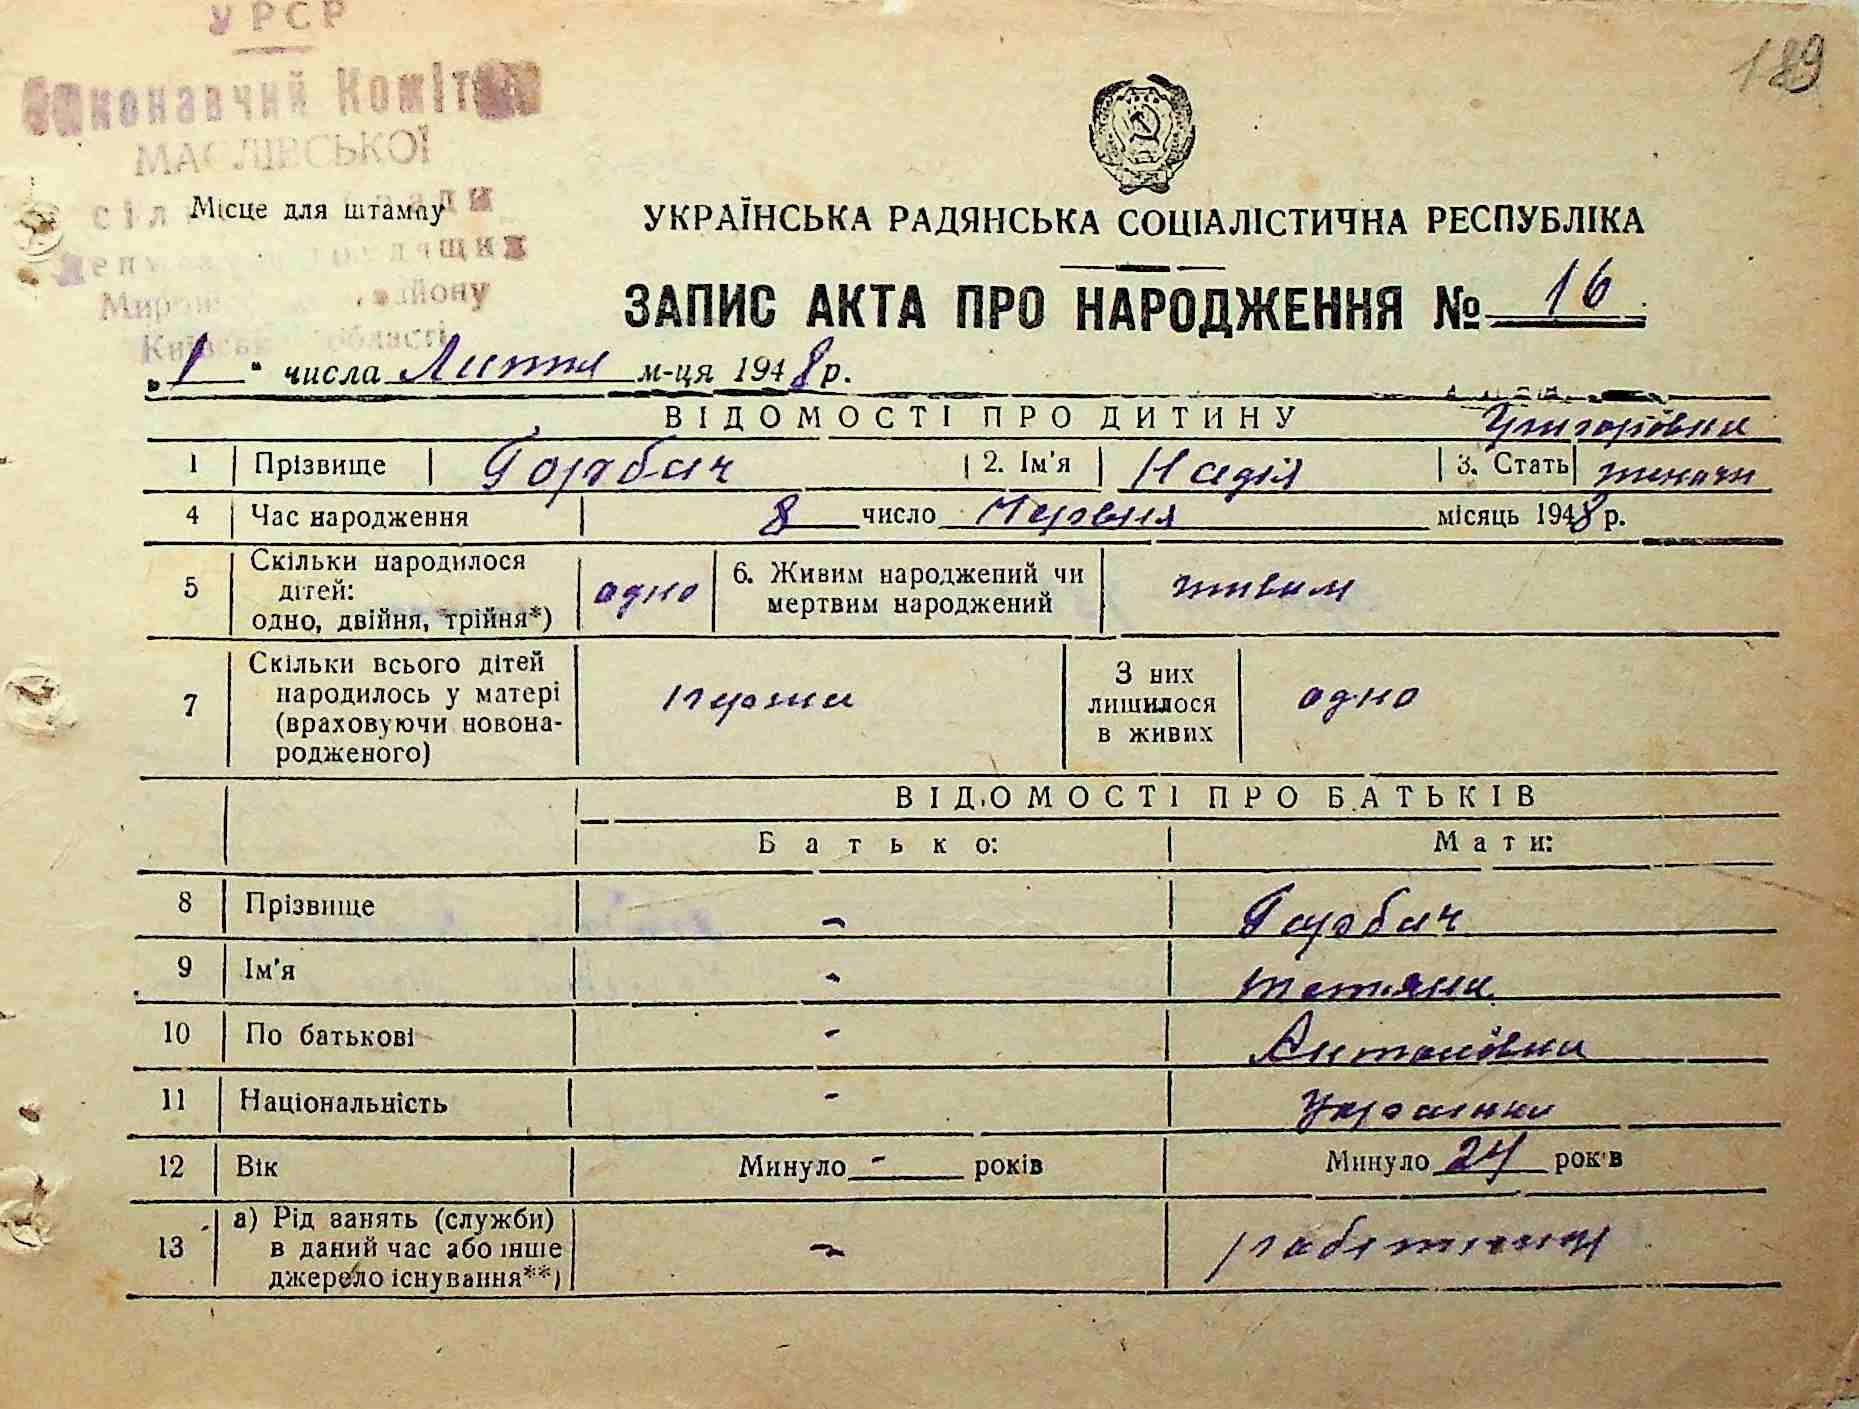 УРСР
189
Виконавчий Комітет
МАСЛІВСЬКОЇ
сіл ради
Місце для штампу
УКРАЇНСЬКА РАДЯНСЬКА СОЦІАЛІСТИЧНА РЕСПУБЛІКА
трудящих
району
ЗАПИС АКТА ПРО НАРОДЖЕННЯ № 16
області
„1" числа Липня м-ця 1948 р.
ВІДОМОСТІ ПРО ДИТИНУ Григорівна
1 Прізвище Горбач 2. Ім'я Надія 3. Стать жіноча
4 Час народження 8 число Червня місяць 1948 р.
5 Скільки народилося дітей: одно, двійня, трійня*) одно 6. Живим народжений чи мертвим народжений живим
7 Скільки всього дітей народилось у матері (враховуючи новона-родженого) перша З них лишилося в живих одно
ВІДОМОСТІ ПРО БАТЬКІВ
Батько: Мати:
8 Прізвище - Горбач
9 Ім'я - Тетяна
10 По батькові - Антонівна
11 Національність - Українка
12 Вік Минуло - років Минуло 24 років
13 а) Рід занять (служби) в даний час або інше джерело існування**) -